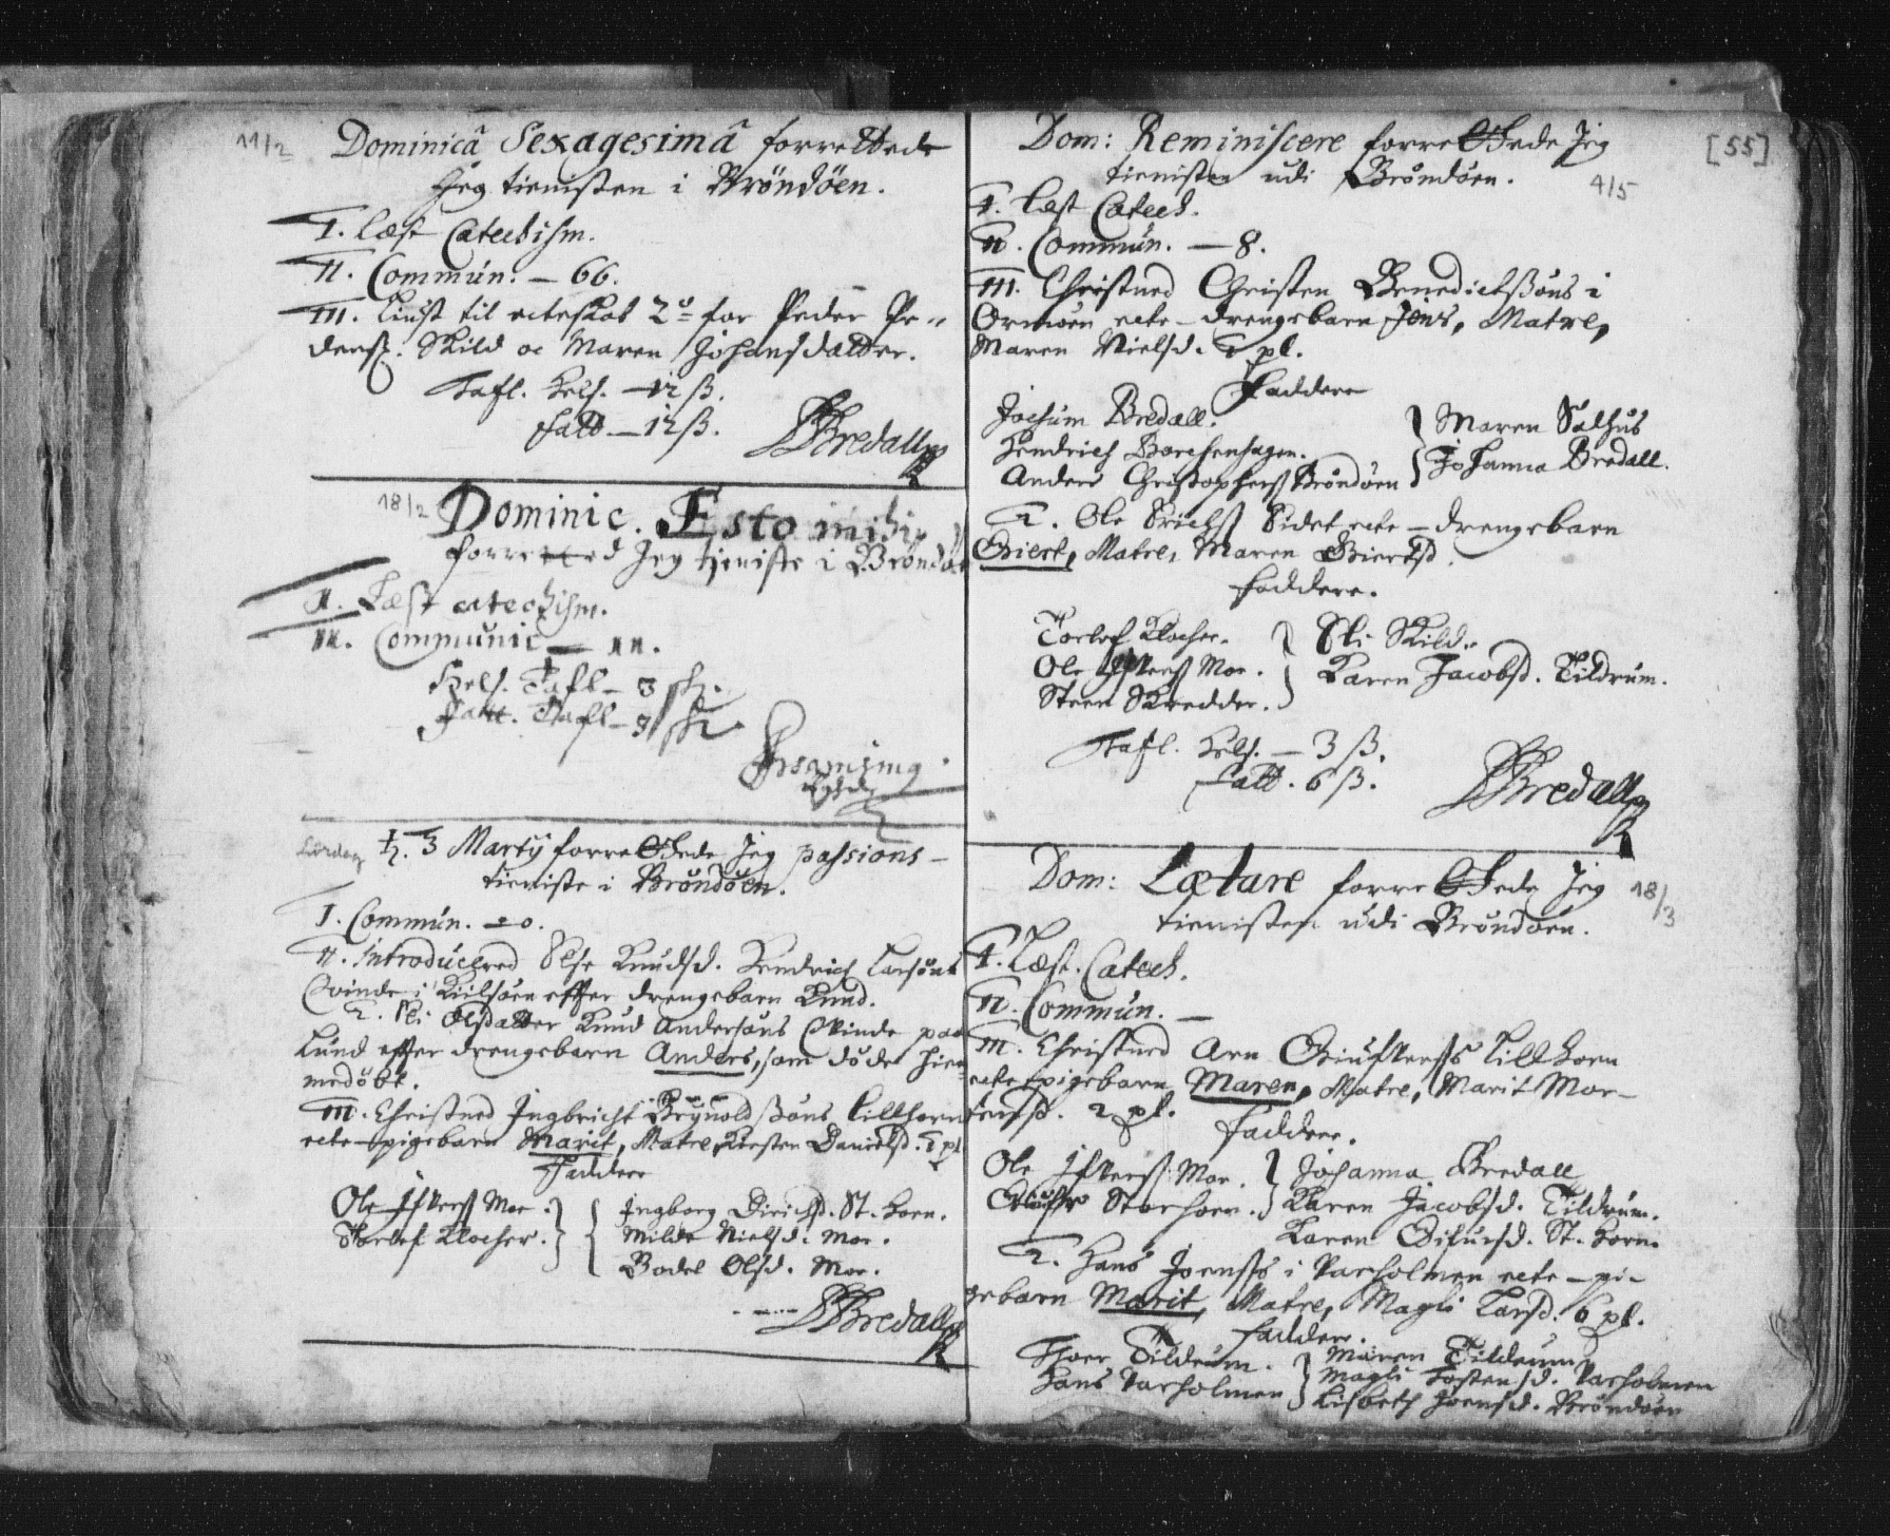 11/2
Dominicâ Sexagesimâ forrettede
Jeg tienisten i Bröndöen.
I. Læst Catechism.
II. Commun. — 66.
III. Liust til ecteskab 2º for Peder Pe„
ders. Skild oc Maren Johansdatter.
Tafl. Hels. — 12 ß.
Fatt — 12 ß.
Bredall
18/2
Dominic. Esto mihi
forretted Jeg tieniste i Bröndö
II. Læst catechism.
III. Communic — 11.
Hels. Tafl — 3 sk.
Fatt. Tafl — 3 sk
Lørdag
♄. 3 Martij forrettede Jeg passions-
tieniste i Bröndöen.
I. Commun. 20.
II. Introducered Else Knudsd. Hendrich Larsöns
Qvinde i Kiilsöen effter drengebarn Knud.
2. Sli Olsdatter Knud Andersöns Qvinde paa
Lund effter drengebarn Anders, som döde hiem
medöbt.
III. Christned Ingbricht Reÿnoldsßöns Lillhorn
ecte-pigebarn Marit, Matre, Kirsten Danielsd. 1 pl
Faddere
Ole Ifvers Moe.
Torlef Klocher.
Ingborg Dirichsd. St. Horn.
Milde Nielsd. Moe.
Bodel Olsd. Moe.
Bredall
[55]
Dom: Reminiscere forrettede Jeg
tienisten udi Bröndöen.
4/5
I. Læst Catech.
II. Commun. — 8.
III. Christned Christen Benedictsßöns i
Ormöen ecte-drengebarn Jens, Matre,
Maren Nielsd. 1 pl.
Faddere
Jochum Bredall.
Hendrich Borchenhagen.
Anders Christophers Bröndöen
Maren Salhus
Johanna Bredall.
2. Ole Erichs Sidet ecte-drengebarn
Giert, Matre, Maren Giertsd.
Faddere.
Torlef Klocher.
Ole Ifvers Moe.
Steen Skredder.
Sli Skild.
Karen Jacobsd. Tildrum.
Tafl. Hels. — 3 ß.
Fatt. 6 ß.
Bredall
Dom: Lætare forrettede Jeg
18/3
tienisten udi Bröndöen.
I. Læst. Catech.
II. Commun. —
III. Christned Arn Giufvers Lillhorn
ecte pigebarn Maren, Matre, Marit Mor-
tensd. 2 pl.
Faddere.
Ole Ifvers Moe.
Storhorn.
Johanna Bredall
Karen Jacobsd. Tildrum.
Karen Sifursd. St. Horn.
2. Hans Joenss i Varholmen ecte-pi-
gebarn Marit, Matre, Magli Larsd. 6 pl.
Faddere.
Thoer Tildrum.
Hans Varholmen
Maren Tildrum
Magli Tostensd. Varholmen
Lisbeth Joensd. Bröndöen